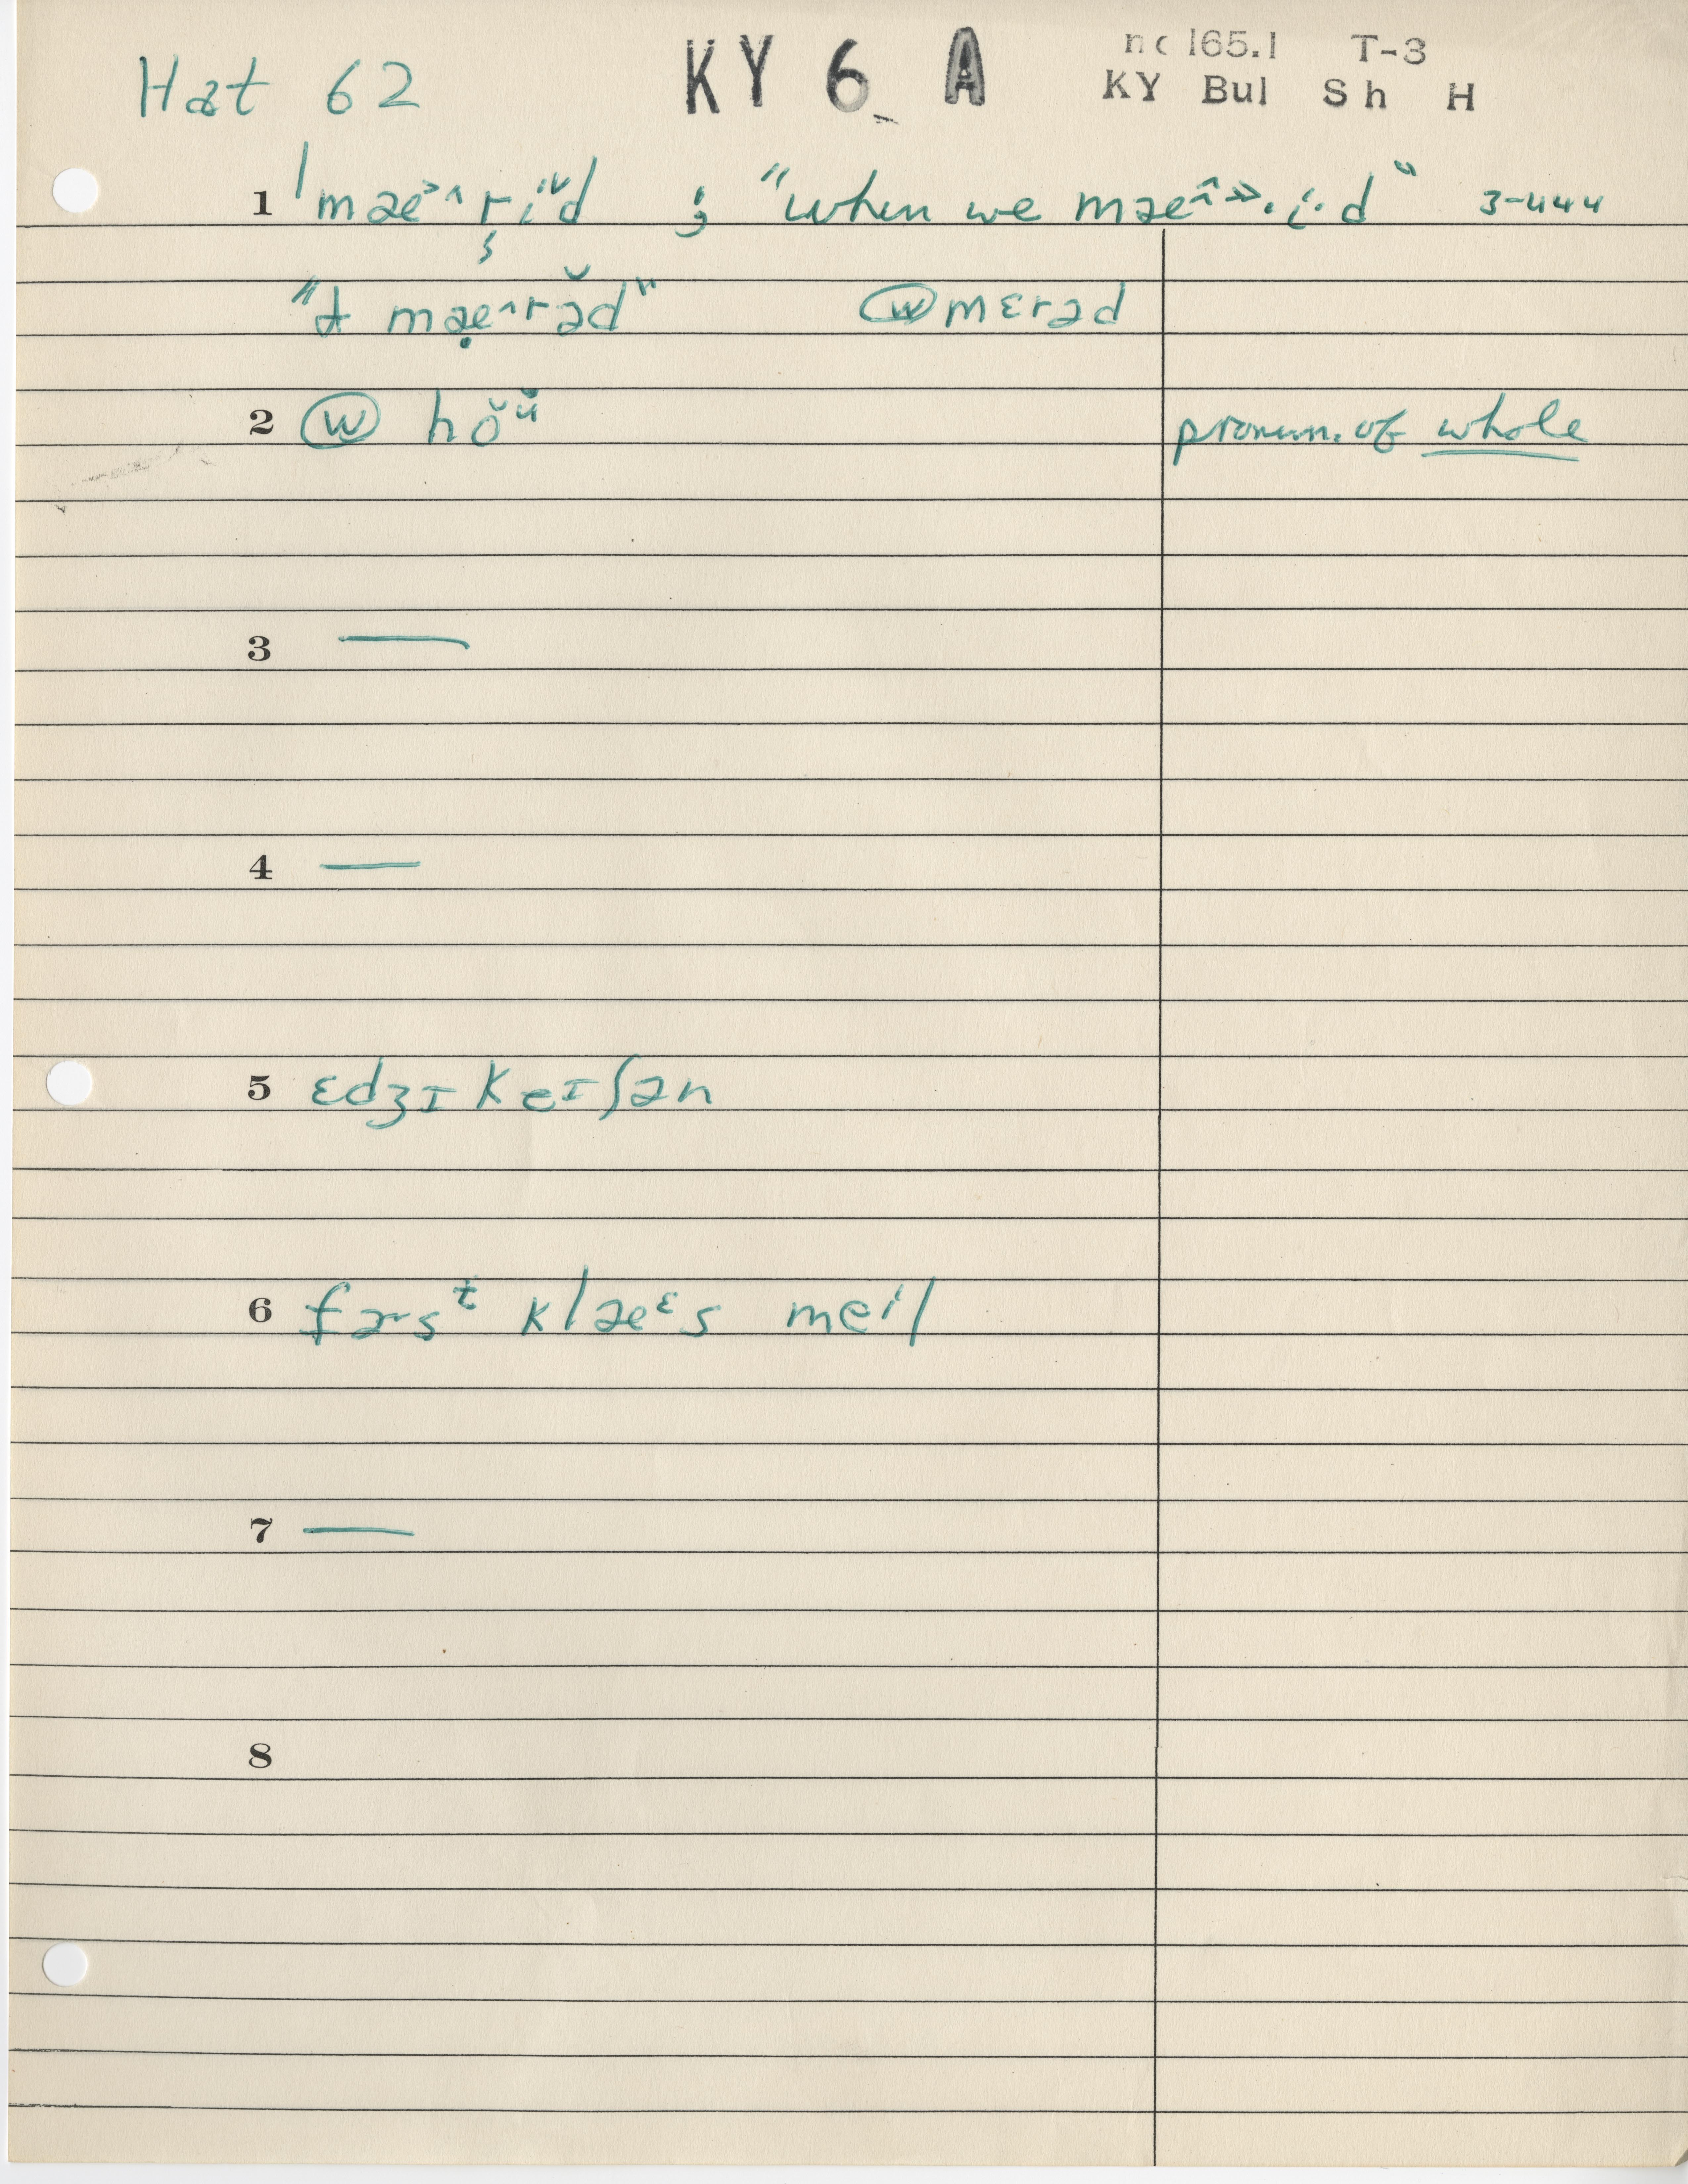 Hat 62 KY 6 A nc 165.1 T-3
KY Bul Sh H
1 mæ˃˄ri̬d ; "when we mæ 3-444
mæ˄rə̆d" ⓦ mɛrəd
2 ⓦ hŏŭ pronun. of whole
3 —
4 —
5 ɛdʒɪkeɪʃən
6 fɚsᵗ klæᵋs meⁱl
7 —
8